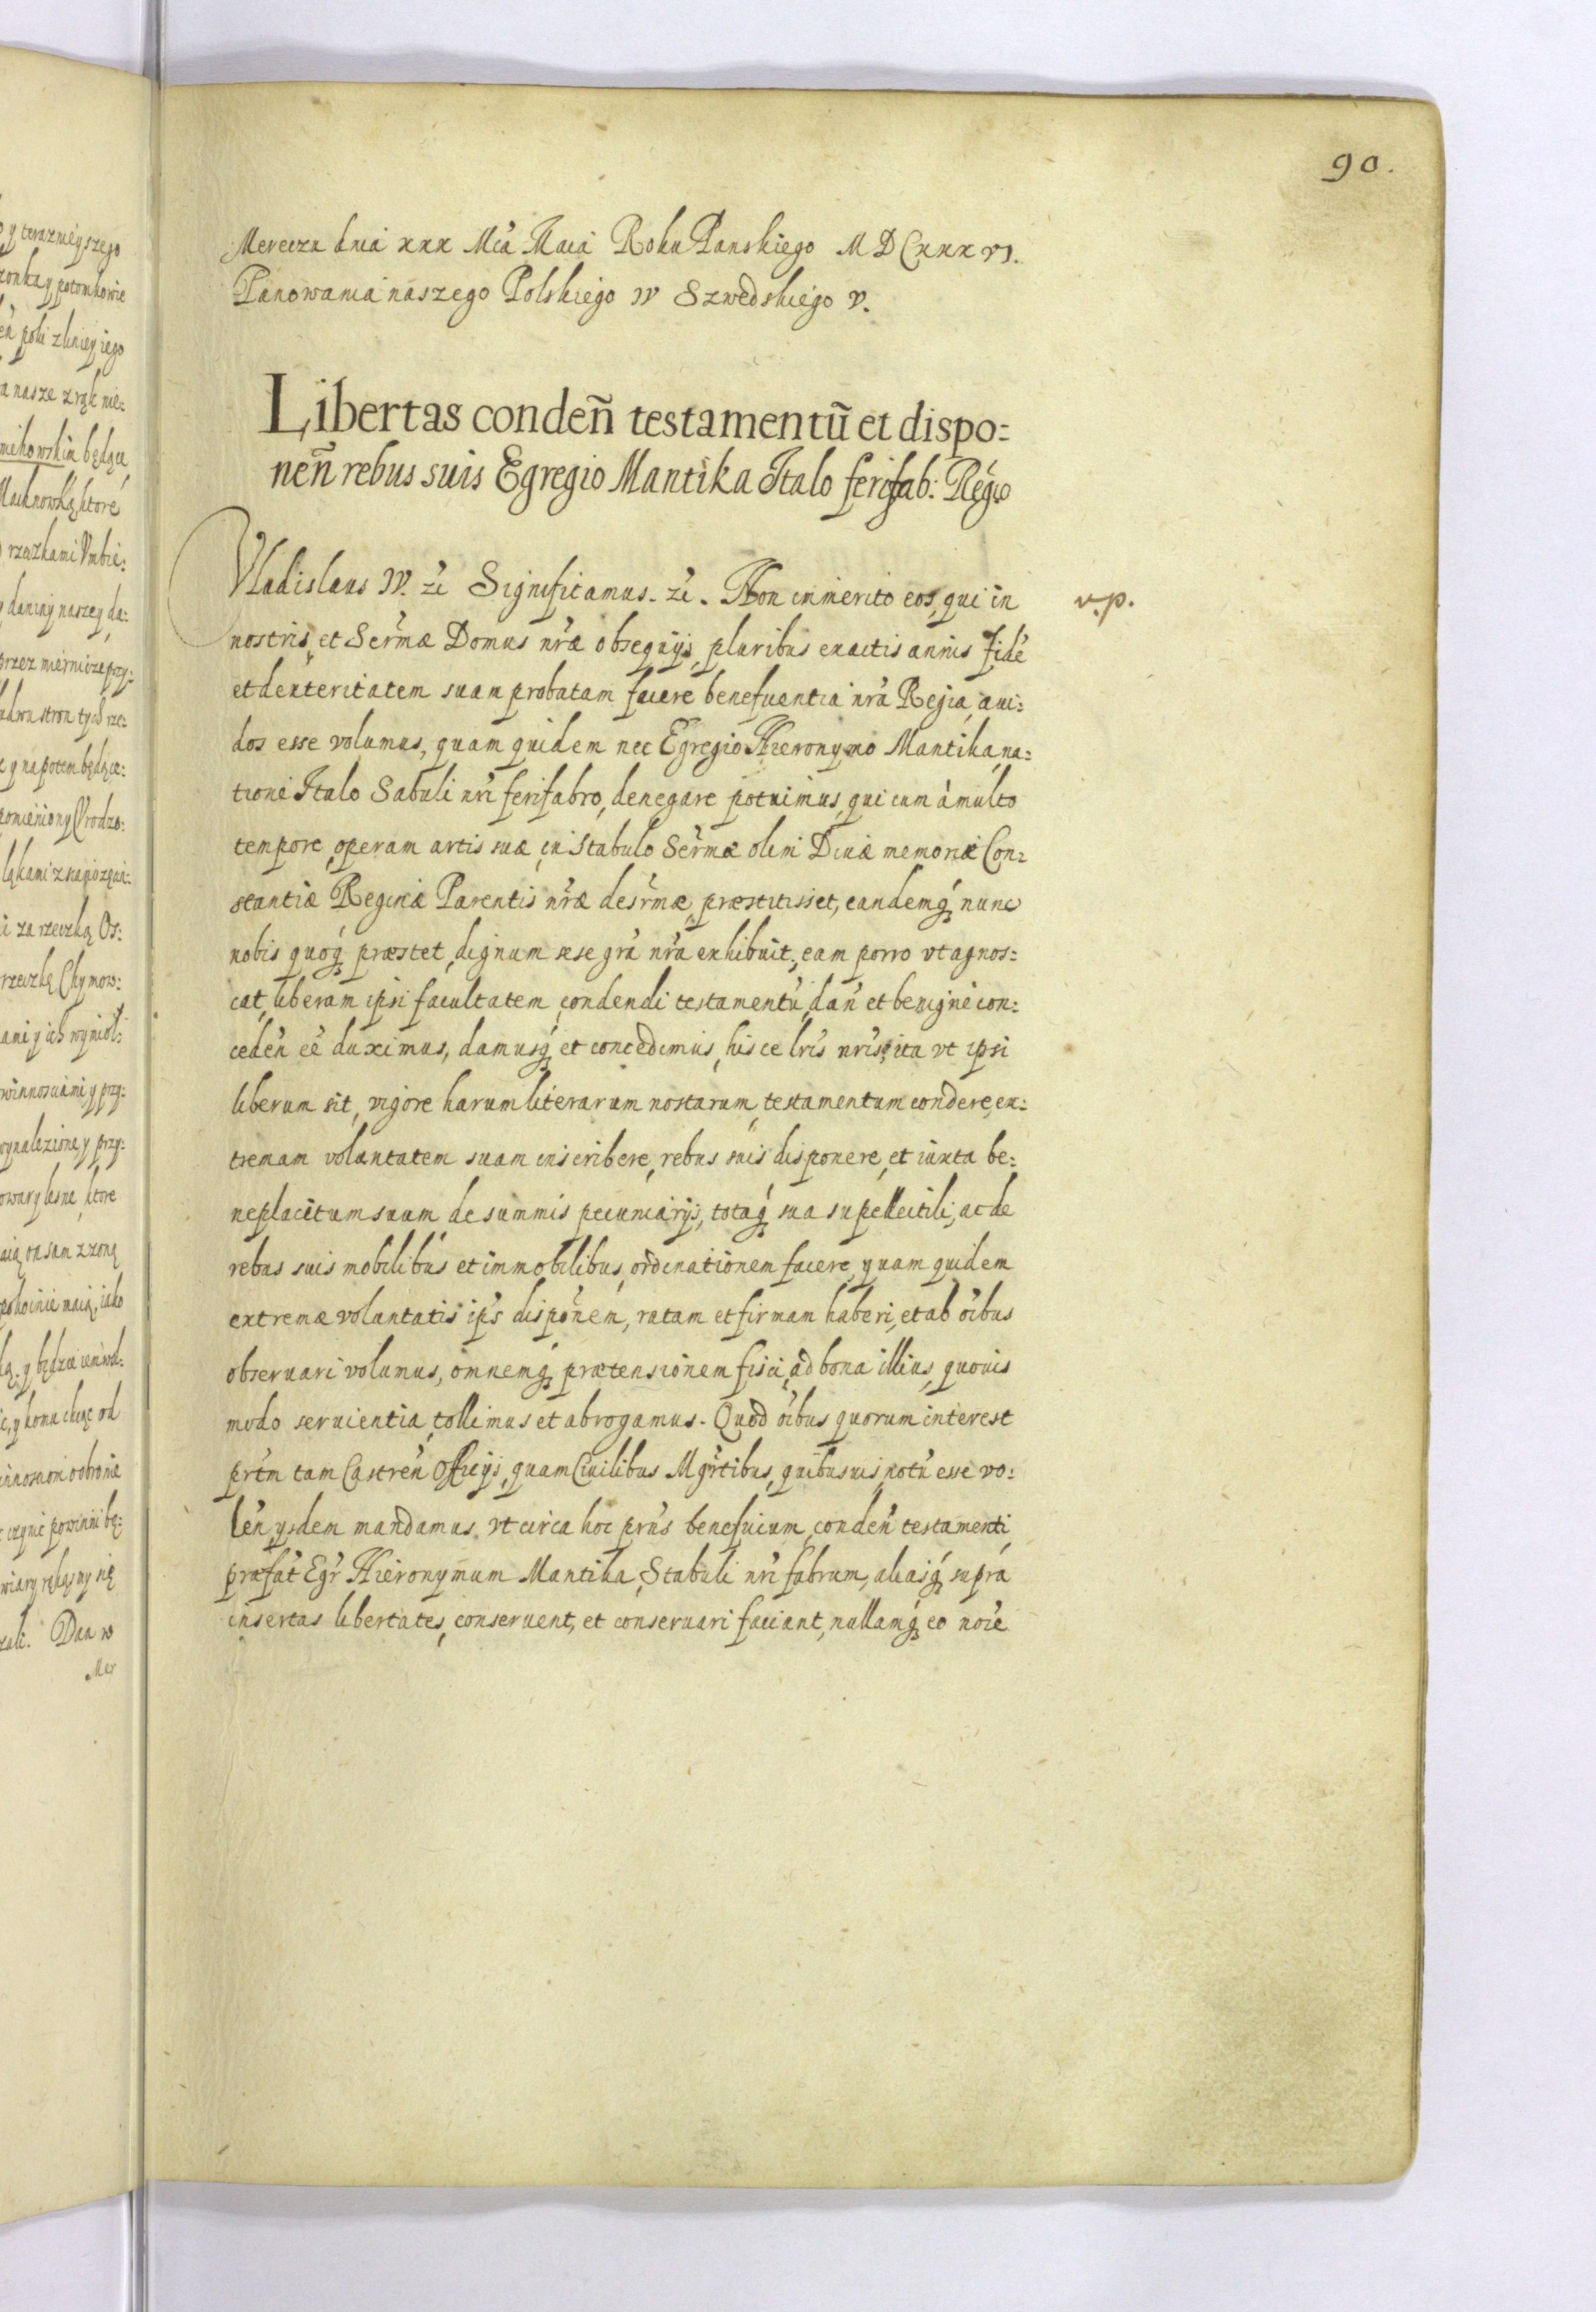 90.
Mereczu dnia xxx Mca Maia Roku Panskiego M D Cxxx vi.
Panowania naszego Polskiego IV Szwedskiego V.
Libertas condeñ testamentũ et dispo=
neñ rebus suis Egregio Mantika Italo ferifab: Regio
Vladislaus IV. zc Significamus. zc. Non immerito eos, qui in
v.p.
nostris, et Serm̃æ Domus nr̃æ obsequijs, pluribus exactis annis fidẽ
et dexteritatem suam probatam facere beneficentia nr̃a Regia, aui=
dos esse volumus, quam quidem nec Egregio Hieronymo Mantika, na=
tione Italo Sabuli nr̃i ferifabro, denegare potuimus, qui cum à multo
tempore, operam artis suæ, in stabulo Serm̃æ olim Diuæ memoriæ Con=
stantiæ Reginæ Parentis nr̃æ desr̃mæ, præstitisset, eandemq́ꝫ nunc
nobis quoq́ꝫ præstet, dignum sese grã nr̃a exhibuit, eam porro vt agnos=
cat, liberam ipsi facultatem, condendi testamentũ, dañ et benigne con=
cedeñ eẽ duximus, damusq́ꝫ et concedimus, hisce lr̃is nr̃is, ita vt ipsi
liberum sit, vigore harum literarum nostarum, testamentum condere, ex=
tremam voluntatem suam inscribere, rebus suis disponere, et iuxta be=
neplacitum suum de summis pecuniarijs, totaq́ꝫ sua supellectili, ac de
rebus suis mobilibus et immobilibus, ordinationem facere, quam quidem
extremæ voluntatis ip̃s dispõnem, ratam et firmam haberi, et ab oĩbus
obseruari volumus, omnemq́ꝫ prætensionem fisci, ad bona illius, quouis
modo seruientia, tollimus et abrogamus. Quod oĩbus quorum interest
prt̃m tam Castreñ Officijs, quam Ciuilibus Mgr̃tibus, quibusuis, notũ esse vo=
leñ, ysdem mandamus, vt circa hoc prñs beneficium, condeñ testamenti,
præfat̃ Egr̃ Hieronymum Mantika, Stabuli nr̃i fabrum, aliasq́ꝫ supra
insertas libertates, conseruent, et conseruari faciant, nullamq́ꝫ eo noĩe